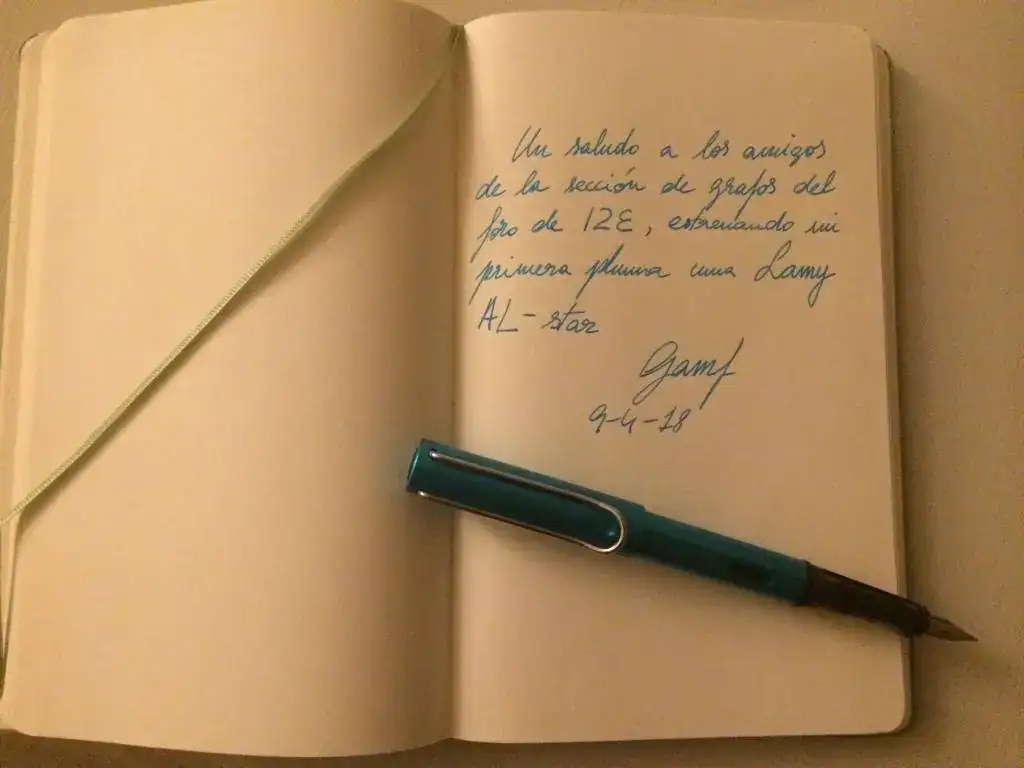 Un saludo a los amigos
de la sección de grafos del
foro de 12E, estrenando mi
primera pluma una Lamy
AL-star
Gamf
9-4-18